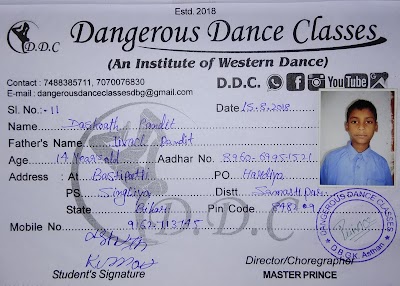 Estd. 2018
D.D.C Dangerous Dance Classes
(An Institute of Western Dance)
Contact : 7488385711, 7070076830 D.D.C. YouTube
E-mail : dangerousdanceclassesdbg@gmail.com
Sl. No.:- 11 Date 15.8.2018
Name Dashrath Pandit
Father's Name Pandit
Age 14 years old Aadhar No.
Address : At Bastipatti PO
PS. Singhiya Distt. Samastipur
State Bihar Pin Code
Mobile No.
D.D.C
Kumar
Student's Signature
Director/Choreographer
MASTER PRINCE
DANGEROUS DANCE CLASSES
Prince